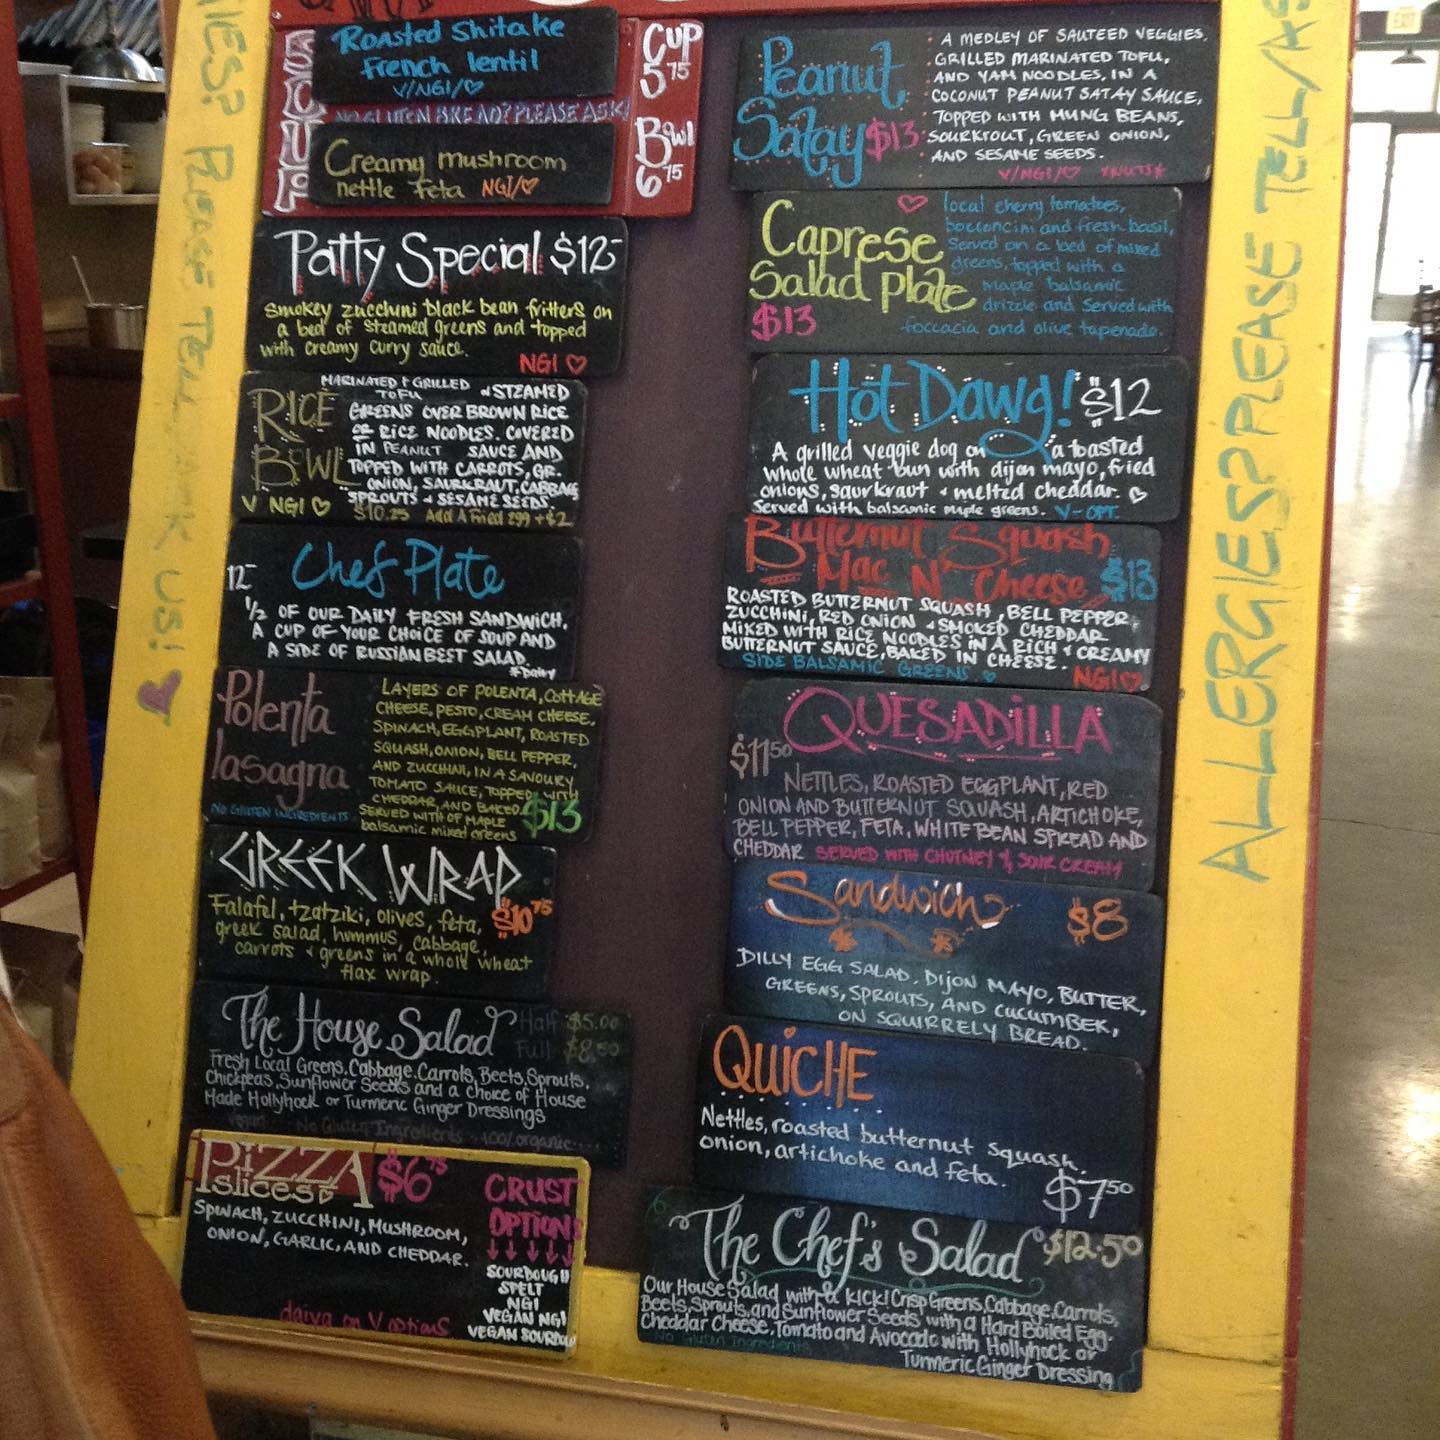 SOUP
Roasted Shitake
French lentil
V/NGI/♡
NO GLUTEN BREAD? PLEASE ASK!
Creamy mushroom
nettle feta NGI/♡
CUP
5.75
Bowl
6.75
Patty Special $12-
Smokey zucchini black bean fritters on
a bed of steamed greens and topped
with creamy curry sauce.
NGI ♡
RICE
BOWL
V NGI ♡
MARINATED + GRILLED
TOFU & STEAMED
GREENS OVER BROWN RICE
OR RICE NOODLES. COVERED
IN PEANUT SAUCE AND
TOPPED WITH CARROTS, GR.
ONION, SAURKRAUT, CABBAGE
SPROUTS & SESAME SEEDS.
$10.25 Add A Fried egg +$2
12- Chef Plate
1/2 OF OUR DAILY FRESH SANDWICH,
A CUP OF YOUR CHOICE OF SOUP AND
A SIDE OF RUSSIAN BEET SALAD.
*dairy
Polenta
lasagna
NO GLUTEN INGREDIENTS
LAYERS OF POLENTA, COTTAGE
CHEESE, PESTO, CREAM CHEESE,
SPINACH, EGGPLANT, ROASTED
SQUASH, ONION, BELL PEPPER,
AND ZUCCHINI, IN A SAVOURY
TOMATO SAUCE, TOPPED WITH
CHEDDAR, AND BAKED.
SERVED WITH OF MAPLE
balsamic mixed greens
$13
GREEK WRAP
$10.75
Falafel, tzatziki, olives, feta,
greek salad, hummus, cabbage,
carrots & greens in a whole wheat
flax wrap.
The House Salad
Half $5.00
Full $8.50
Fresh Local Greens, Cabbage, Carrots, Beets, Sprouts,
Chickpeas, Sunflower Seeds and a choice of House
Made Hollyhock or Turmeric Ginger Dressings
Vegan No Gluten Ingredients 100% organic....
PIZZA
slices
$6.75
SPINACH, ZUCCHINI, MUSHROOM,
ONION, GARLIC, AND CHEDDAR.
daiya on V options
CRUST
OPTIONS
↓↓↓↓↓
SOURDOUGH
SPELT
NGI
VEGAN NGI
VEGAN SOURDOU
Peanut
Satay $13
A MEDLEY OF SAUTEED VEGGIES,
GRILLED MARINATED TOFU,
AND YAM NOODLES, IN A
COCONUT PEANUT SATAY SAUCE,
TOPPED WITH MUNG BEANS,
SOURKROUT, GREEN ONION,
AND SESAME SEEDS.
V/NGI/♡ *NUTS*
♡
Caprese
Salad Plate
$13
local cherry tomatoes,
bocconcini and fresh basil,
Served on a bed of mixed
greens, topped with a
maple balsamic
drizzle and served with
foccacia and olive tapenade.
Hot Dawg! $12
A grilled veggie dog on a toasted
whole wheat bun with dijon mayo, fried
onions, saurkraut + melted cheddar. ♡
Served with balsamic maple greens. V-OPT.
Butternut Squash
Mac N' Cheese $13
ROASTED BUTTERNUT SQUASH, BELL PEPPER,
ZUCCHINI, RED ONION & SMOKED CHEDDAR
MIXED WITH RICE NOODLES IN A RICH & CREAMY
BUTTERNUT SAUCE, BAKED IN CHEESE.
SIDE BALSAMIC GREENS ♡ NGI ♡
QUESADILLA
$11.50
NETTLES, ROASTED EGGPLANT, RED
ONION AND BUTTERNUT SQUASH, ARTICHOKE,
BELL PEPPER, FETA, WHITE BEAN SPREAD AND
CHEDDAR SERVED WITH CHUTNEY & SOUR CREAM
Sandwich $8
DILLY EGG SALAD, DIJON MAYO, BUTTER,
GREENS, SPROUTS, AND CUCUMBER,
ON SQUIRRELY BREAD.
QUICHE
Nettles, roasted butternut squash,
onion, artichoke and feta.
$7.50
The Chef's Salad $12.50
Our House Salad with a KICK! Crisp Greens, Cabbage, Carrots,
Beets, Sprouts, and Sunflower Seeds with a Hard Boiled Egg,
Cheddar Cheese, Tomato and Avocado with Hollyhock or
No Gluten Ingredients
Turmeric Ginger Dressing
IES? PLEASE TELL/ASK US! ♥
ALLERGIES? PLEASE TELL/AS
EXIT